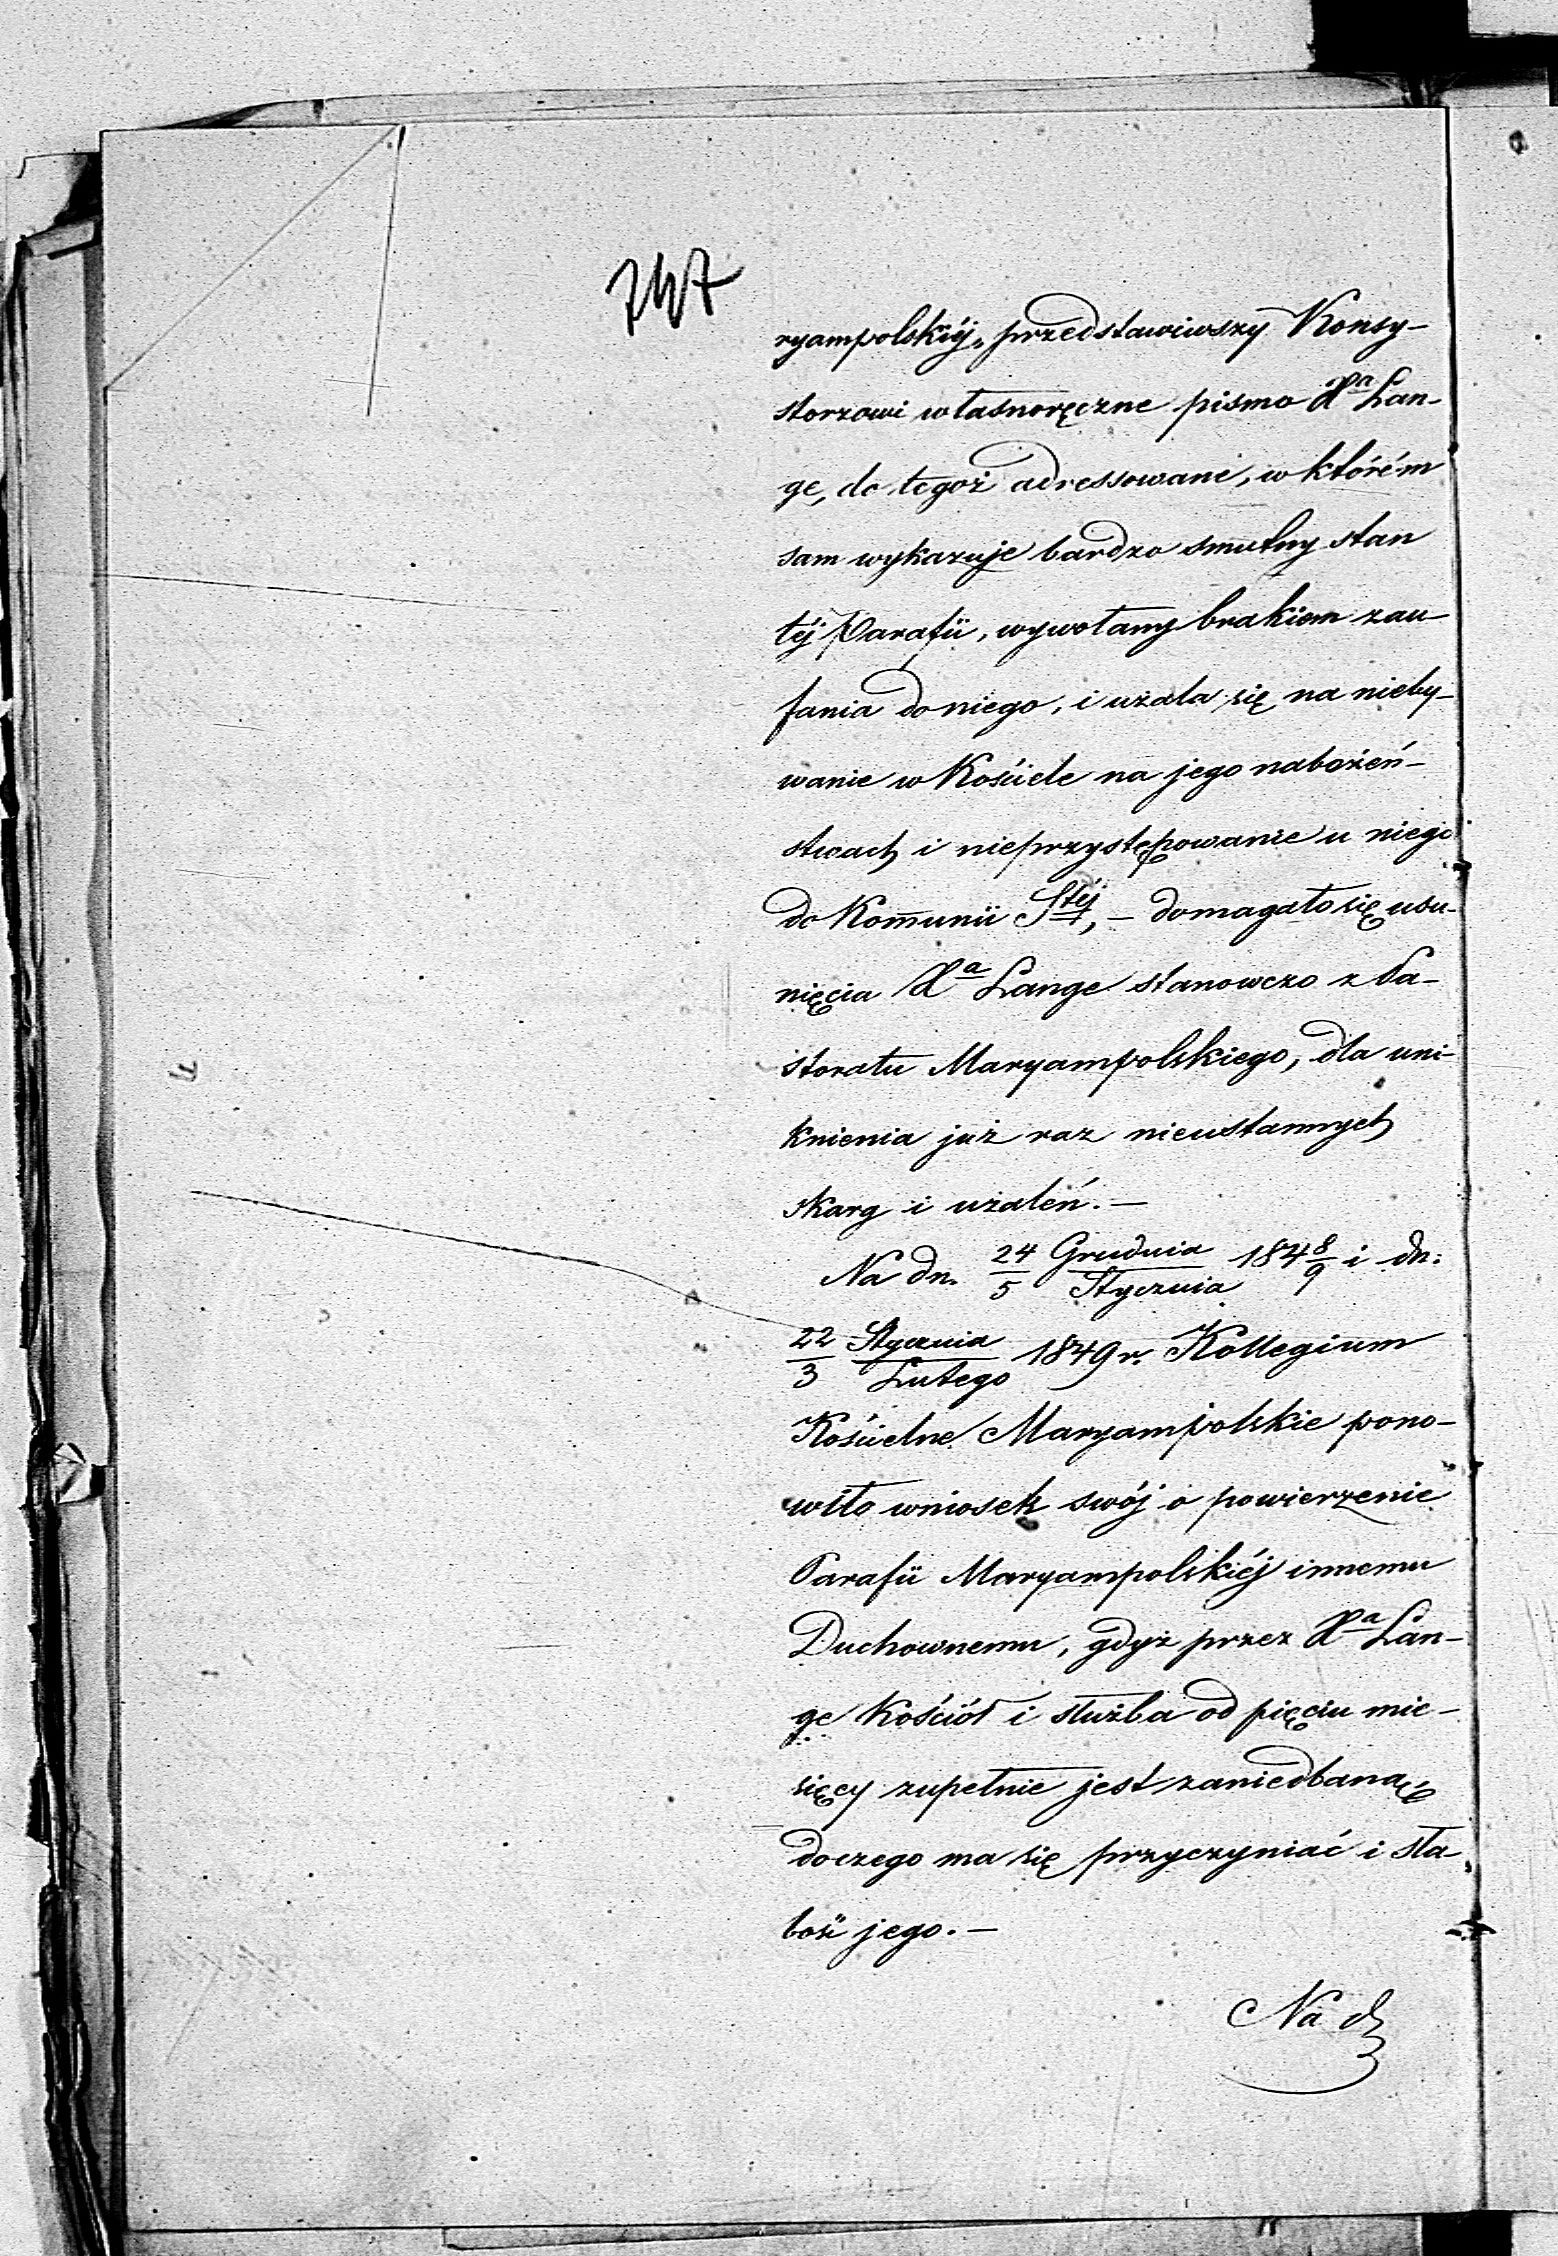 747
ryampolskiéj„ przedstawiwszy Konsy-
storzowi własnoręczne pismo Xa Lan-
ge, do tegoż adressowane, w którém
sam wykazuje bardzo smutny stan
téj Parafii, wywołany brakiem zau-
fania do niego, i użala się na nieby-
wanie w Kościele na jego nabożeń-
stwach i nieprzystępowanie u niego
do Komunii Stéj, – domagało się usu-
nięcia Xa Lange stanowczo z Pa-
storatu Maryampolskiego, dla uni-
knienia już raz nieustannych
skarg i użaleń. –
Na dn. 24/5 Grudnia/Stycznia 184 8/9 i dn:
22/3 Stycznia/Lutego 1849 r. Kollegium
Kościelne Maryampolskie pono-
wiło wniosek swój o powierzenie
Parafii Maryampolskiéj innemu
Duchownemu, gdyż przez Xa Lan-
ge Kościół i służba od pięciu mie-
sięcy zupełnie jest zaniedbaną,
do czego ma się przyczyniać i sła-
bość jego. –
Na d